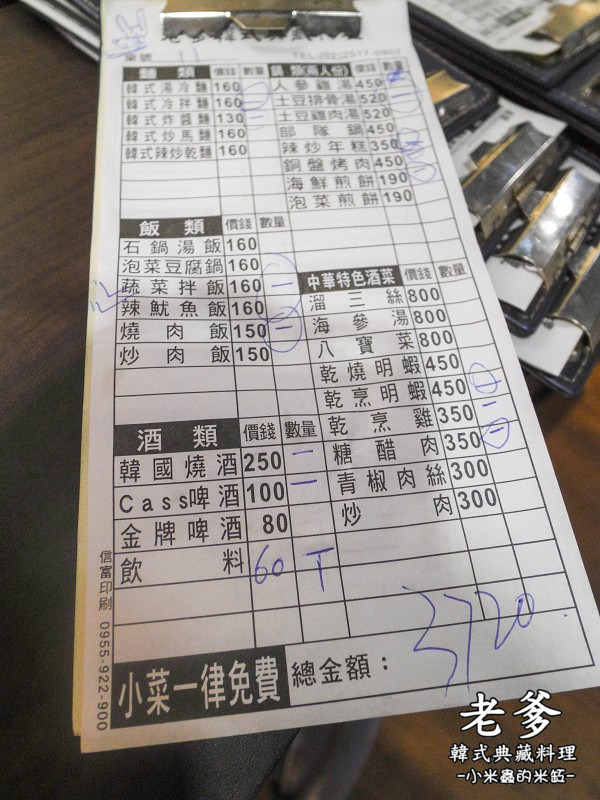 老爹韓式典藏料理
桌號 11 TEL:(02)2517-0907
麵類 價錢 數量
韓式湯冷麵 160
韓式冷拌麵 160
韓式炸醬麵 130
韓式炒馬麵 160
韓式辣炒乾麵 160
鍋類(兩人份) 價錢 數量
人參雞湯 450
土豆排骨湯 520
土豆雞肉湯 520
部隊鍋 450
辣炒年糕 350
銅盤烤肉 450
海鮮煎餅 190
泡菜煎餅 190
飯類 價錢 數量
石鍋湯飯 160
泡菜豆腐鍋 160
蔬菜拌飯 160 一
辣魷魚飯 160
燒肉飯 150 一
炒肉飯 150
中華特色酒菜 價錢 數量
溜三絲 800
海參湯 800
八寶菜 800
乾燒明蝦 450
乾烹明蝦 450
乾烹雞 350 一
糖醋肉 350 一
青椒肉絲 300
炒肉 300
酒類 價錢 數量
韓國燒酒 250 一
Cass啤酒 100 一
金牌啤酒 80
飲料 60 T
小菜一律免費 總金額： 3720
信富印刷 0955-922-900
老爹
韓式典藏料理
-小米蟲的米缸-